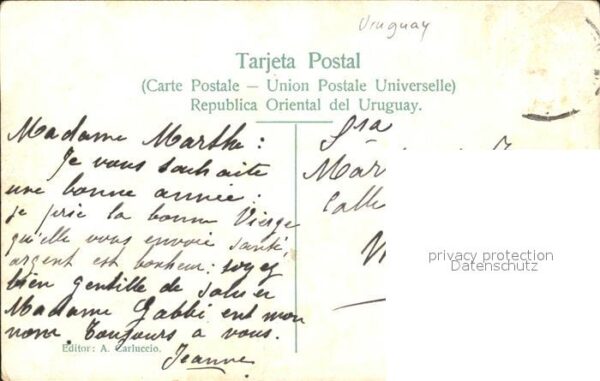 Uruguay
Tarjeta Postal
(Carte Postale — Union Postale Universelle)
Republica Oriental del Uruguay.
Madame Marthe :
Je vous souhaite
une bonne année.
je prie la bonne Vierge
qu'elle vous envoie santé,
argent est bonheur : soyez
bien gentille de saluer
Madame Gabbi ent mon
nom. Toujours a vous.
Jeanne
Editor: A. Carluccio.
Sra
Mar
Calle
privacy protection
Datenschutz